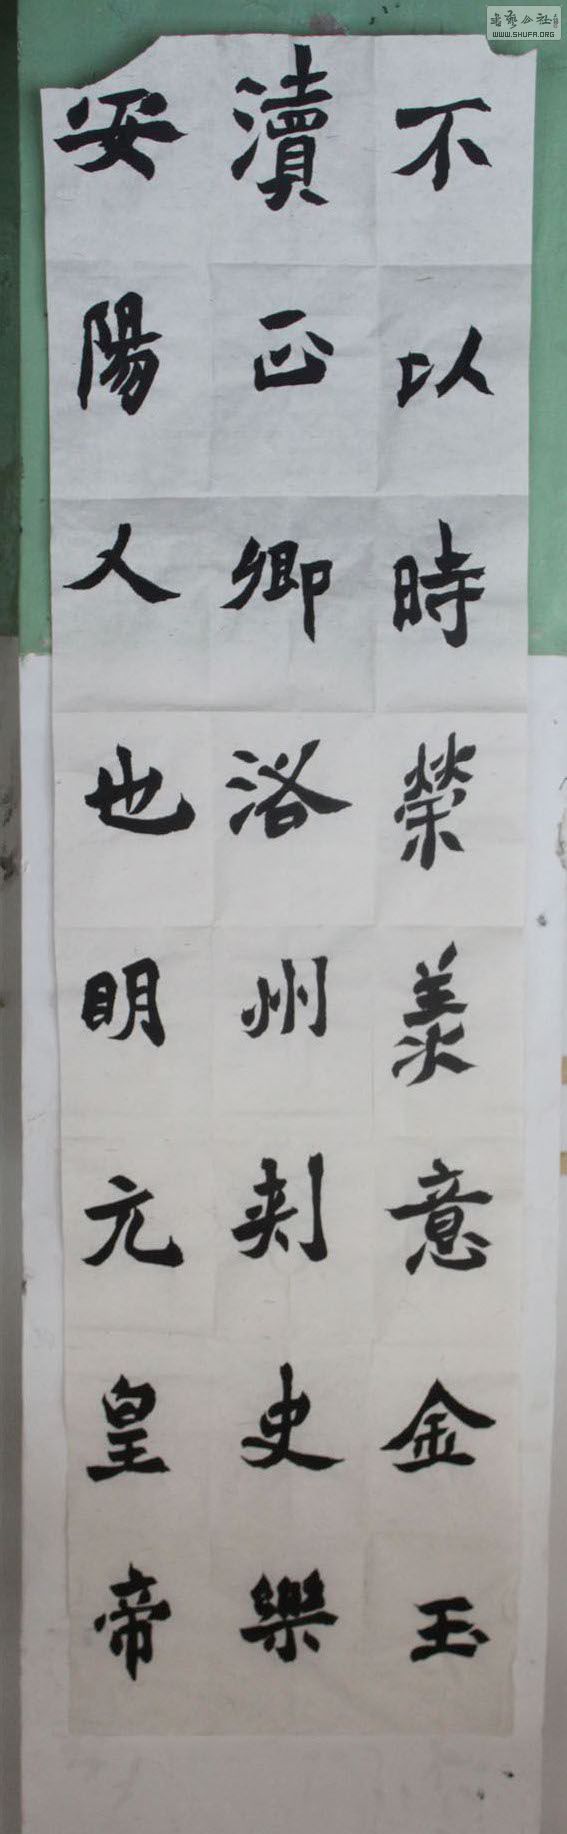 不以時榮羨意金玉
瀆正卿洛州刾史樂
安陽人也明元皇帝
書藝公社
WWW.SHUFA.ORG